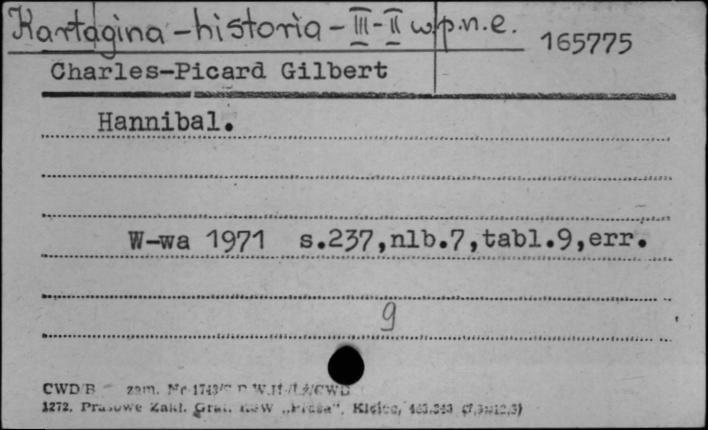 Kartagina - historia - III - II w.p.n.e.
165775
Charles-Picard Gilbert
Hannibal.
W-wa 1971 s.237,nlb.7,tabl.9,err.
9
CWD/B zam. Nr 1743/
1272. Prasowe Zakł. Graf. RSW „Prasa", Kielce,